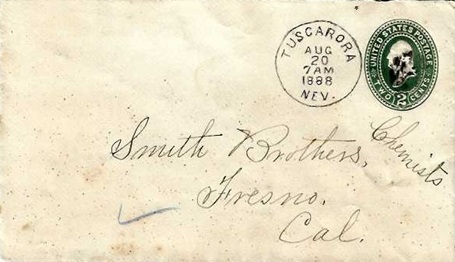 TUSCARORA
AUG
20
7AM
1888
NEV.
UNITED STATES POSTAGE
TWO 2 CENTS
Smith Brothers, Chemists
Fresno,
Cal.